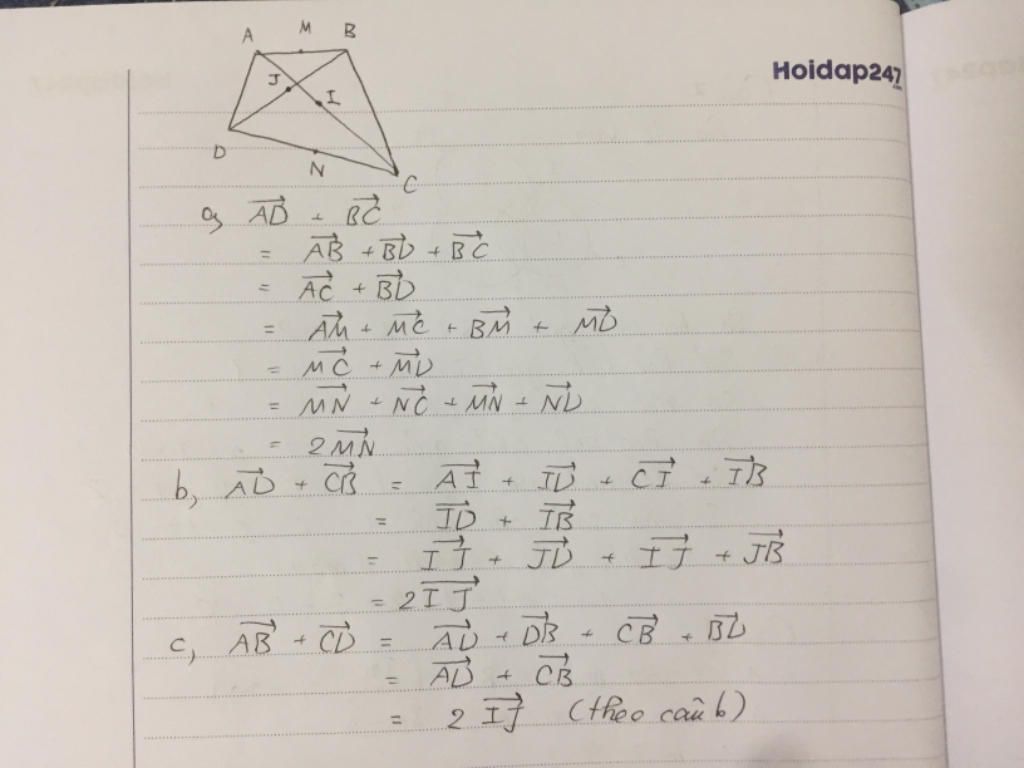 A M B
Hoidap247
.com
J
I
D
N
C
a, AD→ + BC→
= AB→ + BD→ + BC→
= AC→ + BD→
= AM→ + MC→ + BM→ + MD→
= MC→ + MD→
= MN→ + NC→ + MN→ + ND→
= 2MN→
b, AD→ + CB→ = AI→ + ID→ + CI→ + IB→
= ID→ + IB→
= IJ→ + JD→ + IJ→ + JB→
= 2IJ→
c, AB→ + CD→ = AD→ + DB→ + CB→ + BD→
= AD→ + CB→
= 2IJ→ (theo câu b)